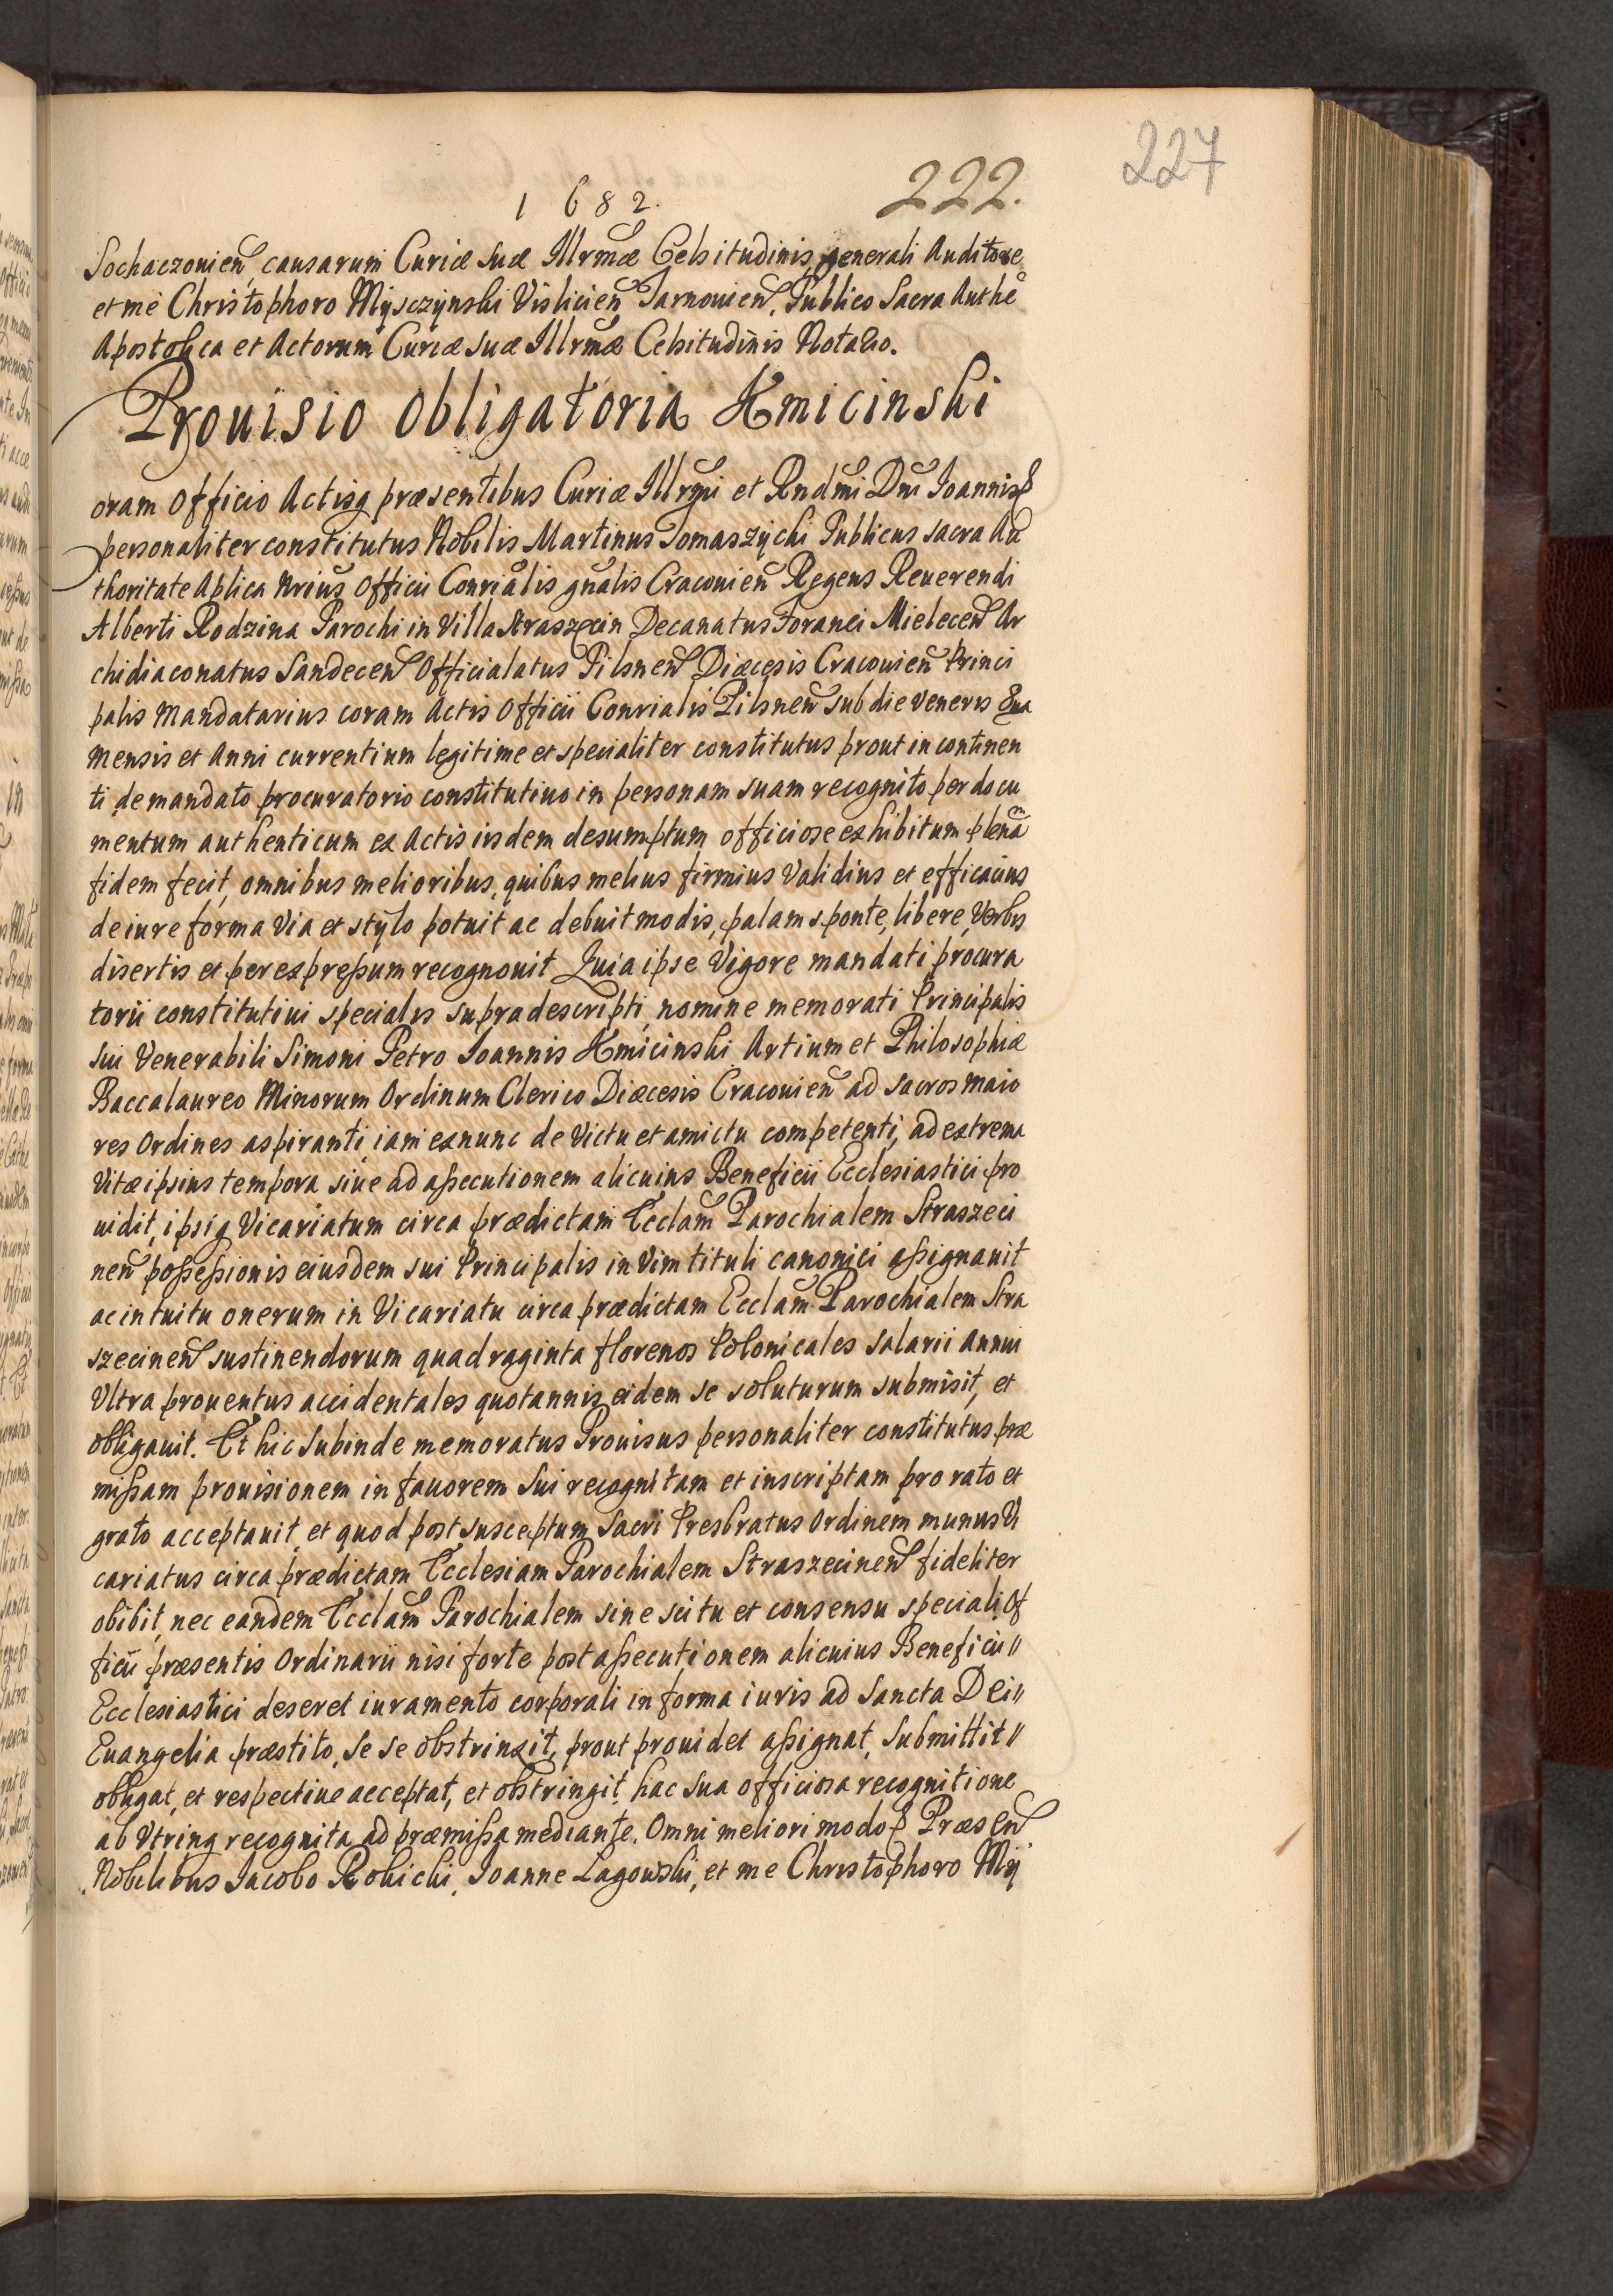 227
222.
1682.
Sochaczouien, causarum Curiæ Suæ Illrmæ Celsitudinis generali Auditore
et me Christophoro Mysczynski Vislicien Tarnouien, Publico Sacra Authe
Apostolica et Actorum Curiæ Suæ Illrmæ Celsitudinis Notario.
Prouisio Obligatoria Kmicinski
oram Officio Actisq præsentibus Curiæ Illrmi et Rndmi Dni Joannis
personaliter constitutus Nobilis Martinus Tomaszycki Publicus sacra Au
thoritate Aplica Nrius Officii Consialis gnalis Cracouien Regens Reuerendi
Alberti Rodzina Parochi in Villa Straszęcin Decanatus Foranei Mielecen Ar
chidiaconatus Sandecen Officialatus Pilsnen Diæcesis Cracouien Princi
palis Mandatarius coram Actis Officii Consialis Pilsnen sub die Veneris
Mensis et Anni currentium legitime et specialiter constitutus prout in continen
ti de mandato procuratorio constitutiuo in personam suam recognito per docu
mentum authenticum ex Actis iisdem desumptum officiose exhibitum plenã
fidem fecit, omnibus melioribus, quibus melius firmius Validius et efficacius
de iure forma Via et stylo potuit ac debuit modis, palam sponte, libere, Verbis
disertis et per expreßum recognouit Quia ipse Vigore mandati procura
torii constitutiui specialis supradescripti, nomine memorati Principalis
sui Venerabili Simoni Petro Joannis Kmicinski Artium et Philosophiæ
Baccalaureo Minorum Ordinum Clerico Diæcesis Cracouien ad sacros maio
res Ordines aspiranti iam exnunc de Victu et amictu competenti, ad extrema
Vitæ ipsius tempora siue ad aßecutionem alicuius Beneficii Ecclesiastici pro
uidit, ipsiq Vicariatum circa prædictam Ecclam Parochialem Straszeci
nen poßeßionis eiusdem sui Principalis in Vim tituli canonici aßignauit
ac intuitu onerum in Vicariatu circa prædictam Ecclam Parochialem Stra
szecinen sustinendorum quadraginta florenos Polonicales salarii Annui
Vltra prouentus accidentales quotannis eidem se soluturum submisit, et
obligauit. Et hic Subinde memoratus Prouisus personaliter constitutus præ
mißam prouisionem in fauorem Sui recognitam et inscriptam pro rato et
grato acceptauit, et quod post susceptum Sacri Presbratus Ordinem munus Vi
cariatus circa prædictam Ecclesiam Parochialem Straszecinen fideliter
obibit, nec eandem Ecclam Parochialem sine scitu et consensu speciali Of
ficii præsentis Ordinarii nisi forte post aßecutionem alicuius Beneficii
Ecclesiastici deseret iuramento corporali in forma iuris ad Sancta Dei
Euangelia præstito, se se obstrinxit, prout prouidet aßignat, Submittit
obligat, et respectiue acceptat, et obstringit, hac sua officiosa recognitione
ab Vtrinq recognita ad præmißa mediante. Omni meliori modo Præsen
Nobilibus Jacobo Rokicki, Joanne Lagowski, et me Christophoro My